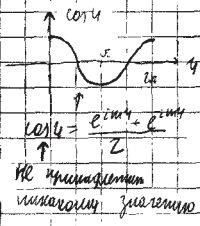 cos φ
π
2π
φ
cos φ = (e^{imφ} + e^{imφ}) / 2
Не принадлежит
никакому значению